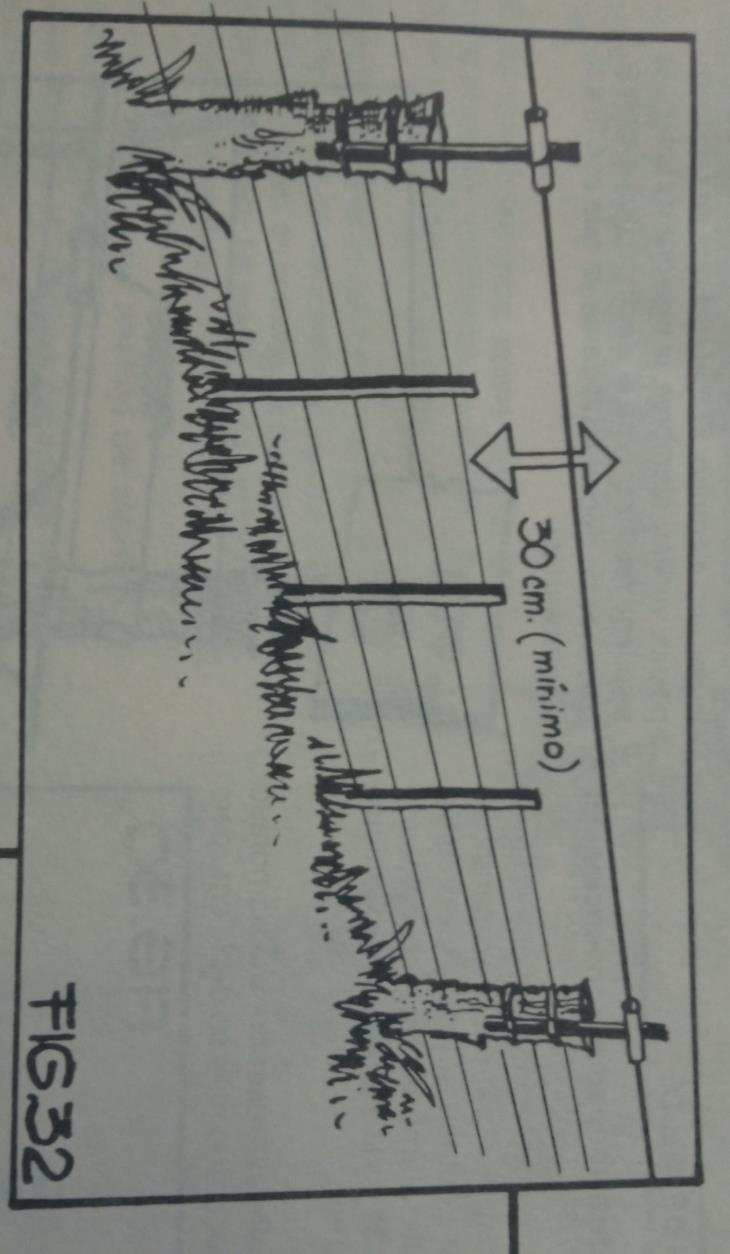 30 cm. (mínimo)
FIG.32